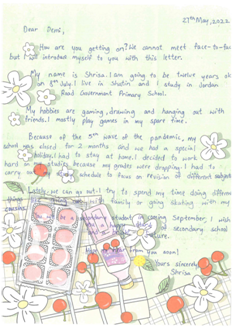 27th May, 2022
Dear Denis,
How are you getting on? We cannot meet face-to-face
but I can introduce myself to you with this letter.
My name is Shrisa. I am going to be twelve years old
8th July. I live in Shatin and I study in Jordan
Road Government Primary School.
My hobbies are gaming, drawing and hanging out with
friends. I mostly play games in my spare time.
Because of the 5th wave of the pandemic, my
school was closed for 2 months and we had a special
holiday. I had to stay at home. I decided to work
hard on my studies because my grades were dropping. I had to
carry on schedule to focus on revision of different subjects
Lately, we can go out. I try to spend my time doing different
things family or going skating with my
cousins.
be a secondary student coming September. I wish
secondary school
from you soon!
Yours sincerely,
Shrisa